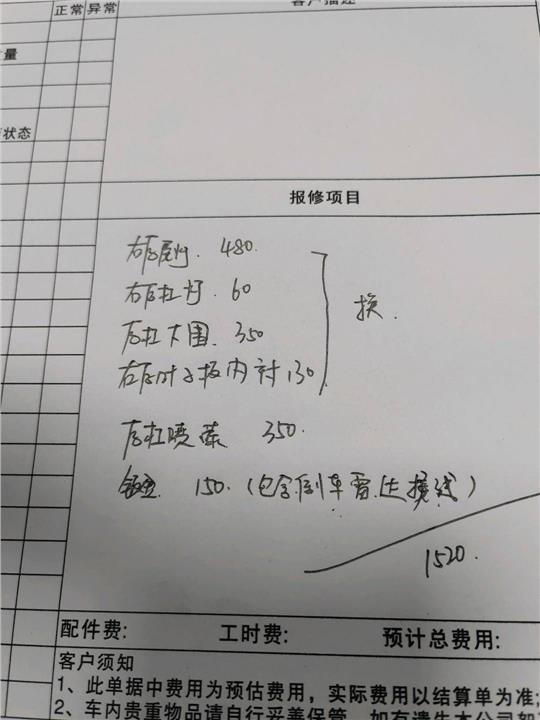 正常 异常
客户描述
量
状态
报修项目
右后尾灯. 480.
右后杠灯. 60
后杠大围. 350
右后叶子板内衬 130
换.
后杠喷漆 350.
钣金 150.(包含倒车雷达接线)
1520.
配件费: 工时费: 预计总费用:
客户须知
1、此单据中费用为预估费用，实际费用以结算单为准;
2、车内贵重物品请自行妥善保管，如有遗失本公司